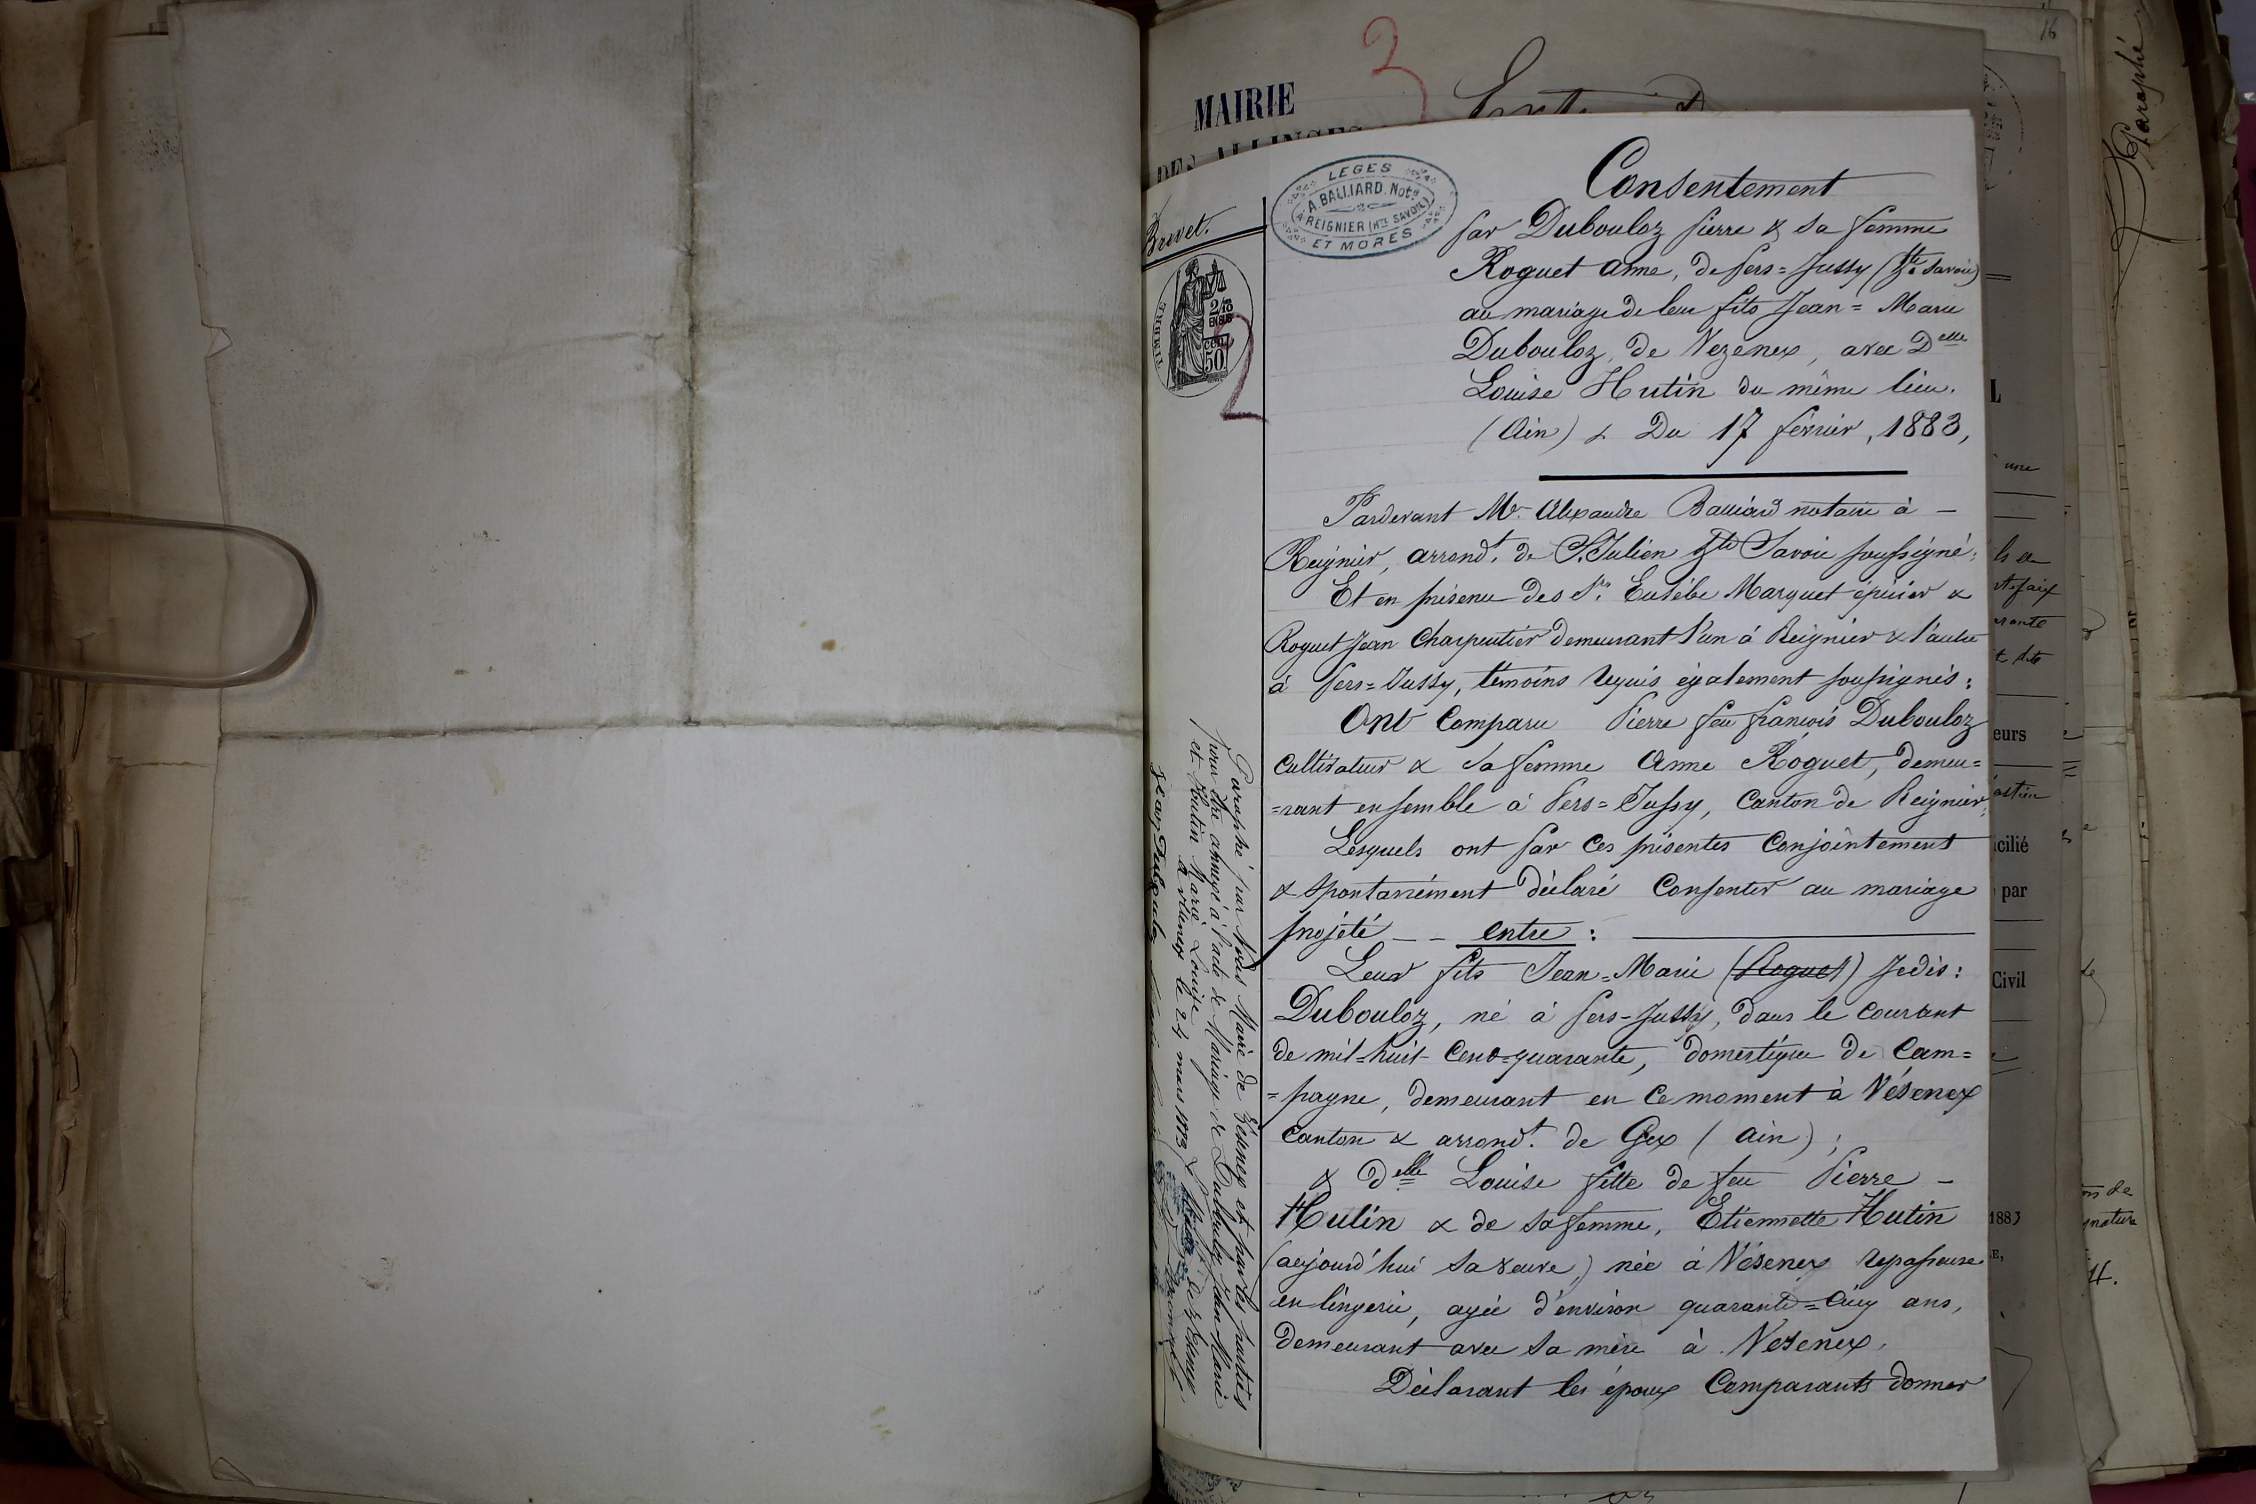 16
MAIRIE
DES ALLINGES
2
Brevet.
LEGES
A. BALLIARD, Not.re
A REIGNIER (Hte SAVOIE)
ET MORES
TIMBRE
2/10
EN SUS
50
2
Consentement
par Dubouloz pierre & sa femme
Roguet anne, de pers=Jussy (hte Savoie)
au mariage de leur fils Jean=Marie
Dubouloz, de Vezenex, avec Delle
Louise Hutin du même lieu.
(Ain) & Du 17 février, 1883,
Pardevant Me. Alexandre Balliard notaire à —
Reignier, arrondt. de St. Julien hte Savoie soussigné;
Et en présence des Srs. Eusèbe Marquet épicier &
Roguet Jean Charpentier demeurant l'un à Reignier & l'autre
à pers=Jussy, témoins requis également soussignés:
Ont Comparu Pierre feu françois Dubouloz
cultivateur & sa femme Anne Roguet, demeu=
=rant ensemble à Pers=Jussy, Canton de Reignier;
Lesquels ont par ces présentes Conjointement
& spontanément déclaré Consentir au mariage
projété — — entre:
Leur fils Jean=Marie (Roguet) Jedis:
Dubouloz, né à pers-Jussy, dans le courant
de mil=huit-cent-quarante, domestique de cam=
=pagne, demeurant en ce moment à Vésenex
Canton & arrondt. de Gex (Ain);
& Delle Louise fille de feu Pierre —
Hutin & de sa femme, Etiennette Hutin
(aujourd'hui sa veuve,) née à Vésenex repasseuse
en lingerie, agée d'environ quarante=cinq ans,
demeurant avec sa mère à Vesenex,
Déclarant les époux Comparants donner
Paraphé par Nous Maire de Vésenex et par les parties
pour être annexé à l'acte de Mariage de Dubouloz Jean Marie
et Hutin Marie Louise
à Vésenex le 24 mars 1883
Jean Dubouloz
Paraphé
une
eurs
icilié
par
Civil
1883